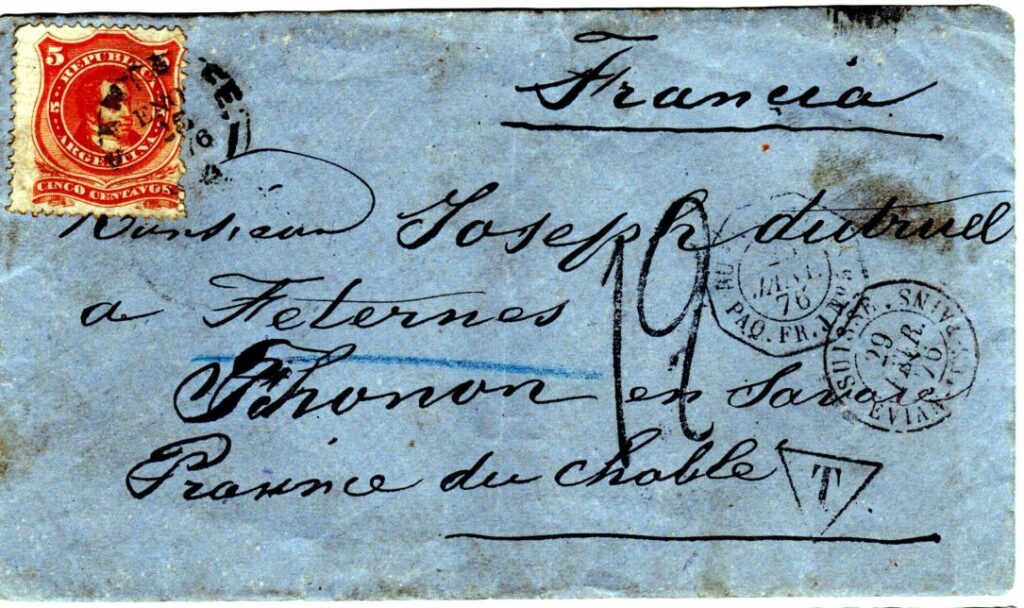 5
5
5
REPUBLICA
ARGENTINA
CINCO CENTAVOS
Francia
Monsieur Joseph dutruel
a Feternes
Thonon en Savoie
Province du Chable
12
JANV.
76
PAQ. FR. J Nº 5
SUISSE
29
JANVR.
76
EVIAN-LES-BAINS
T